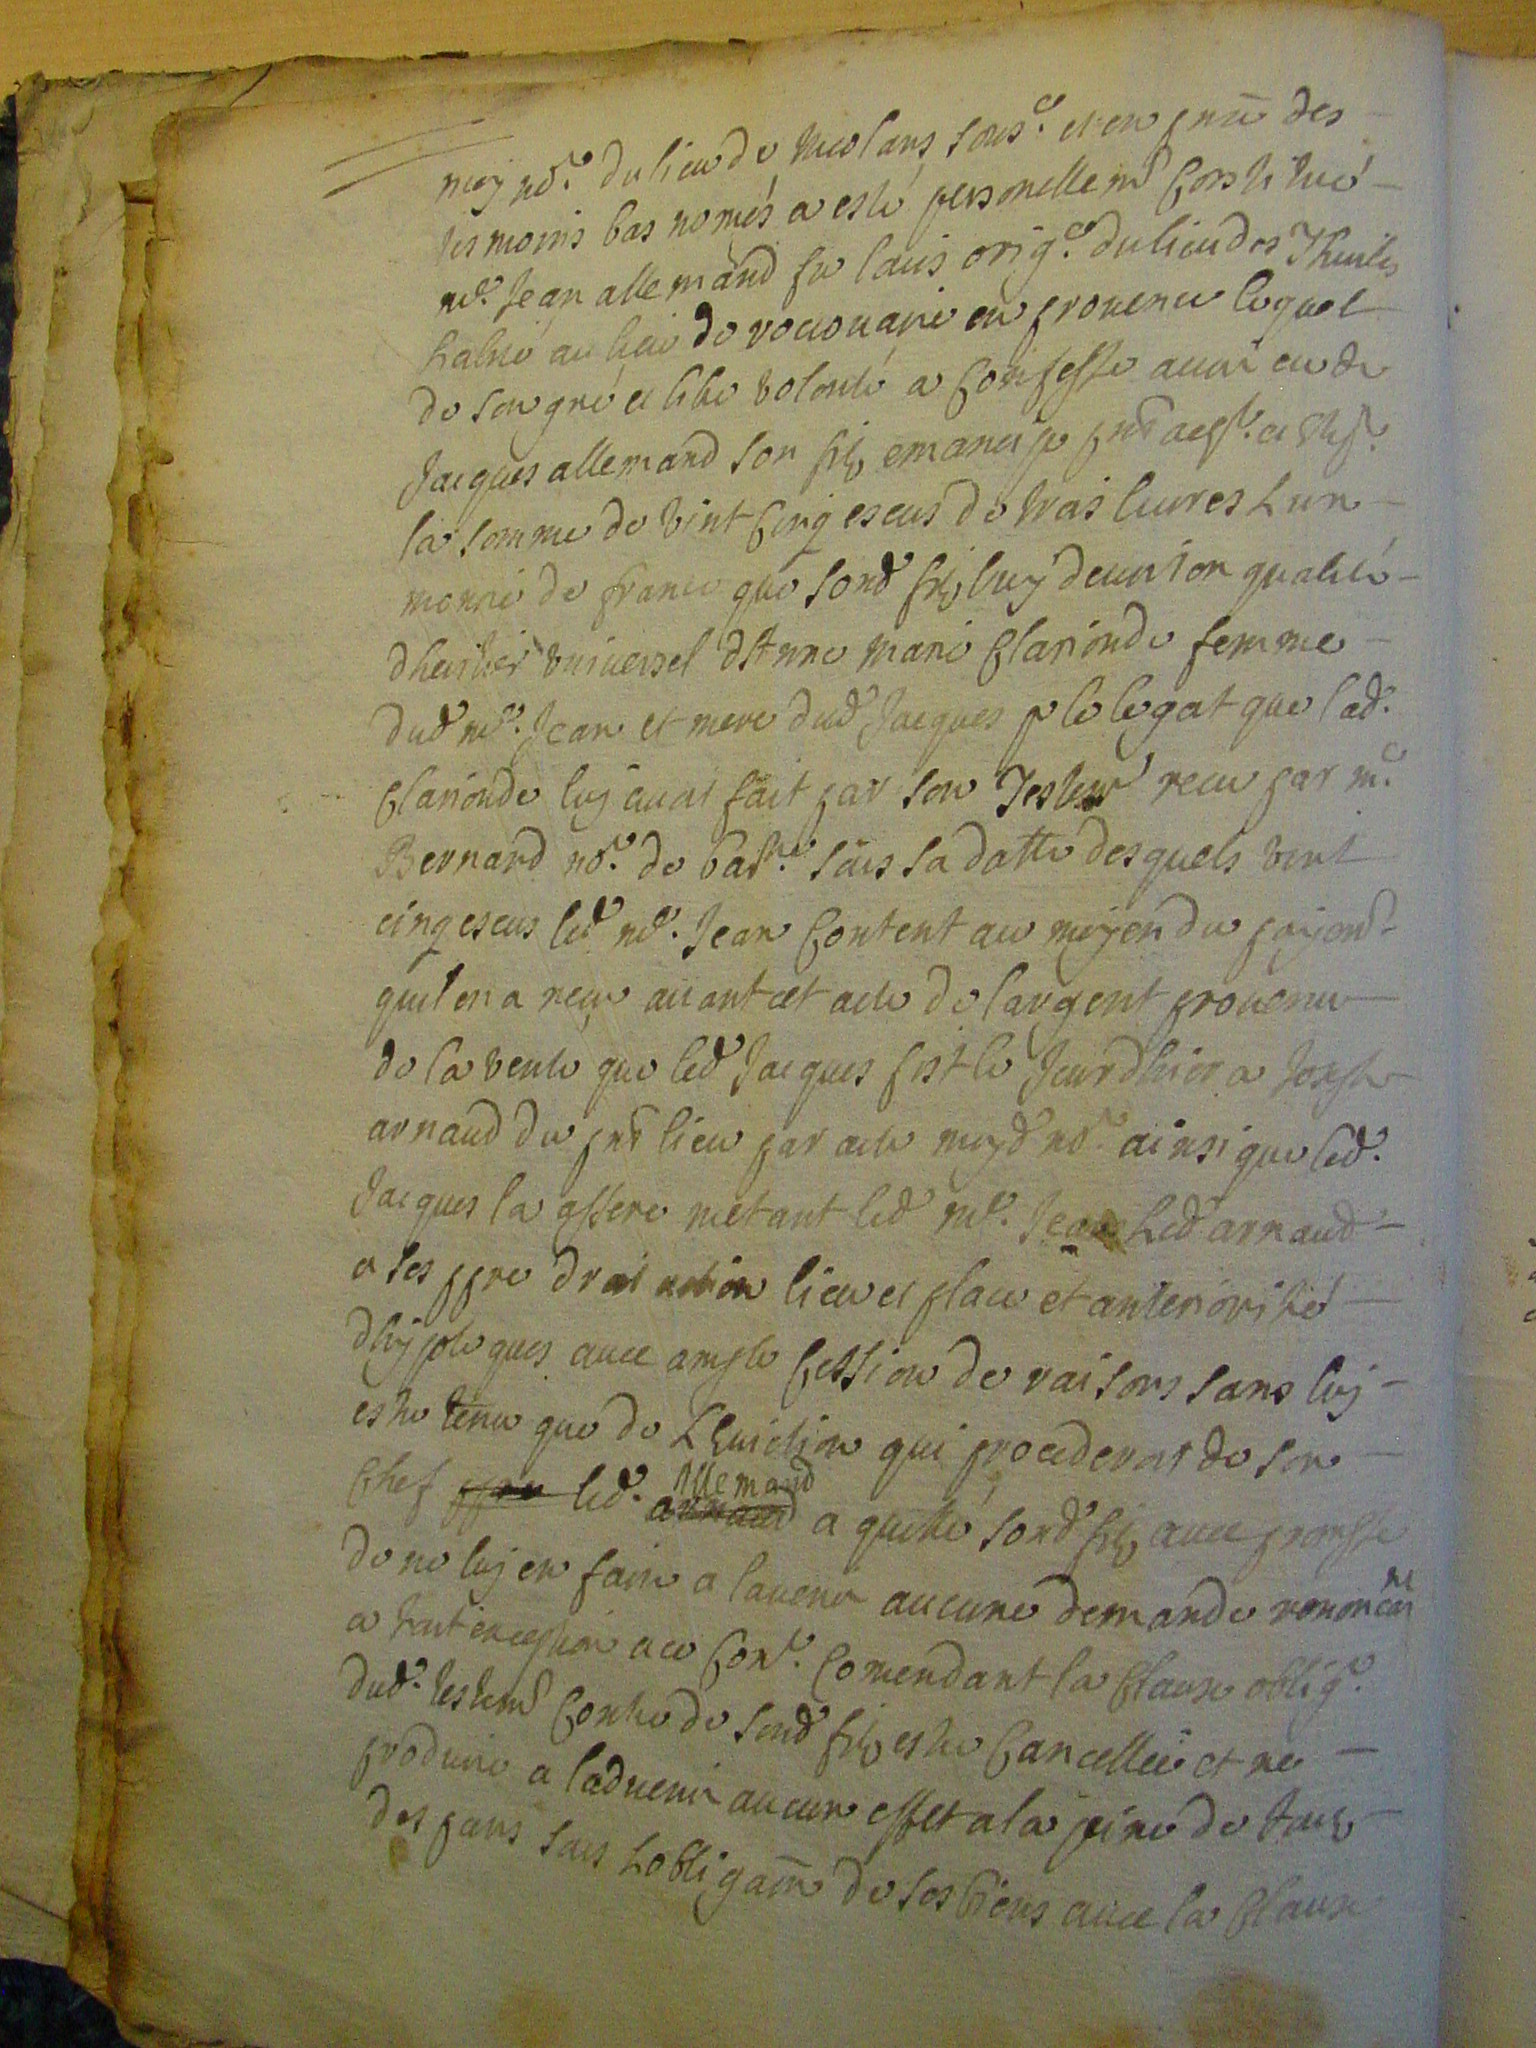 moy nore. du lieu de meolans sousé. et en pnce des
tesmoins bas només a esté personellemt constitué
me. Jean allemand fu Louis orige. du lieu des Thuiles
habité au lieu de roccovaire en provence lequel
de son gré et libe volonté a confessé avoir eu de
Jacques allemand son fils emancipe pnt acept. et stip.
la somme de vint cinq escus de trois livres lun
monoie de france que sond fils luy devoit en qualité
dheritier universel dAnne marie clarionde femme
dud me. Jean et mere dud Jacques p le legat que lad.
clarionde luy avoit fait par son Testamt receu par me
Bernard nore. de bare. sous sa datte desquels vint
cinq escus led me. Jean content au moyen du payemt
quil en a receu avant cet acte de largent provenu
de la vente que led Jacques fist le jourdhier a Joseph
arnaud du pnt lieu par acte moyd nore ainsi que led.
Jacques la assere metant led me. Jean led arnaud
a ses ppre droit action lieu et place et anteriorité
dhypoteques avec ample cession de raisons sans luy
estre tenu que de Leviction qui procederoit de son
chef led. allemand a quitté sond fils avec promesse
de ne luy en faire a lavenir aucune demande renoncant
a tout exception a ce cont. comendant la clause oblige.
dud. testamt contre de sond fils estre cancellée et ne
produire a ladvenir aucun effet a la peine de tous
despans sous Lobligaon de ses biens avec la clause